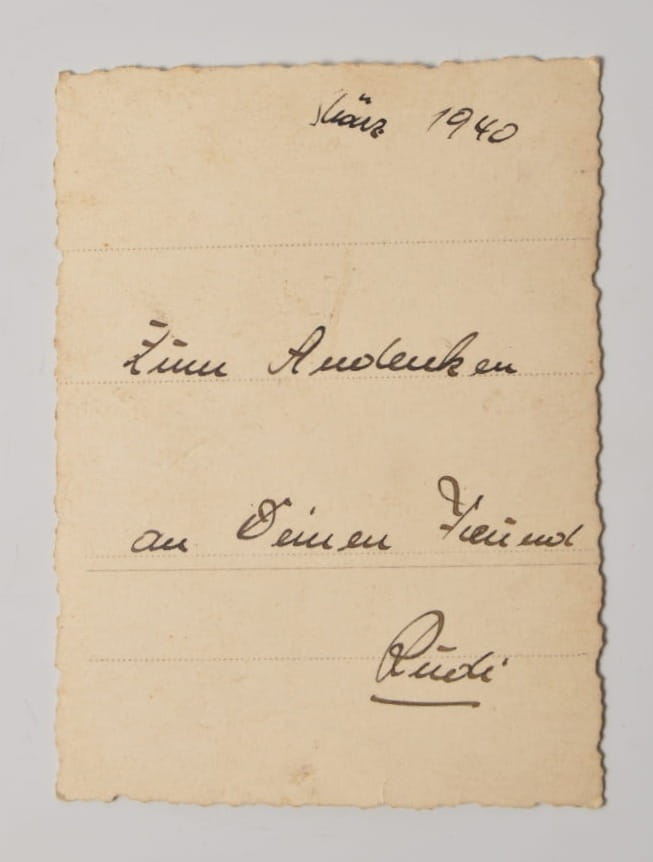 März 1940
Zum Andenken
an Deinen Freund
Rudi